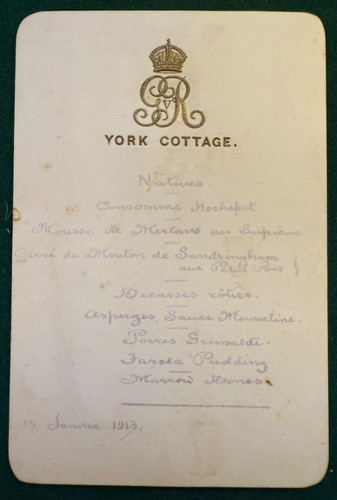 GRV
YORK COTTAGE.
Natives.
Consommé Hochepot
Mousse de Merlans au Suprême
de Mouton de Sandringham
aux Petits Pois }
Bécasses rôties.
Asperges, Sauce Mousseline.
Poires Grimaldi.
Farola Pudding
Marrow Bones
Janvier 1913.